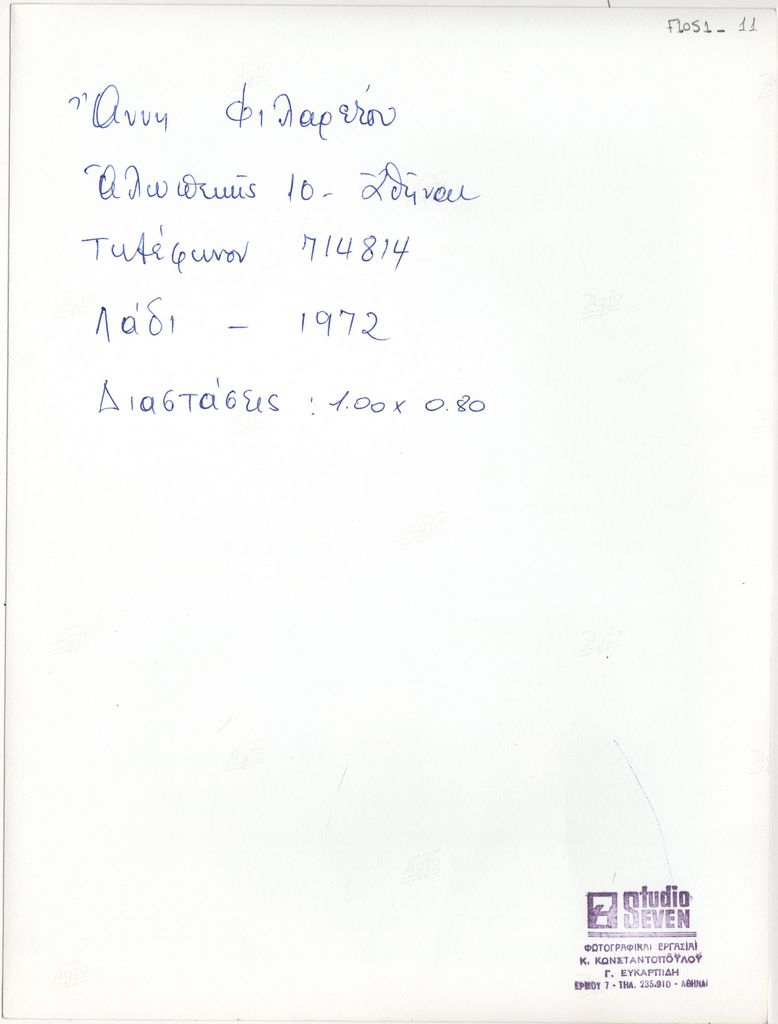 F1051 - 11
Ἄννη Φιλαρετου
Ἀλωπεκῆς 10 - Ἀθῆναι
Τηλέφωνον 714814
Λάδι - 1972
Διαστάσεις : 1.00 x 0.80
Studio
SEVEN
ΦΩΤΟΓΡΑΦΙΚΑΙ ΕΡΓΑΣΙΑΙ
Κ. ΚΩΝΣΤΑΝΤΟΠΟΥΛΟΥ
Γ. ΕΥΚΑΡΠΙΔΗ
ΕΡΜΟΥ 7 - ΤΗΛ. 235.910 - ΑΘΗΝΑΙ